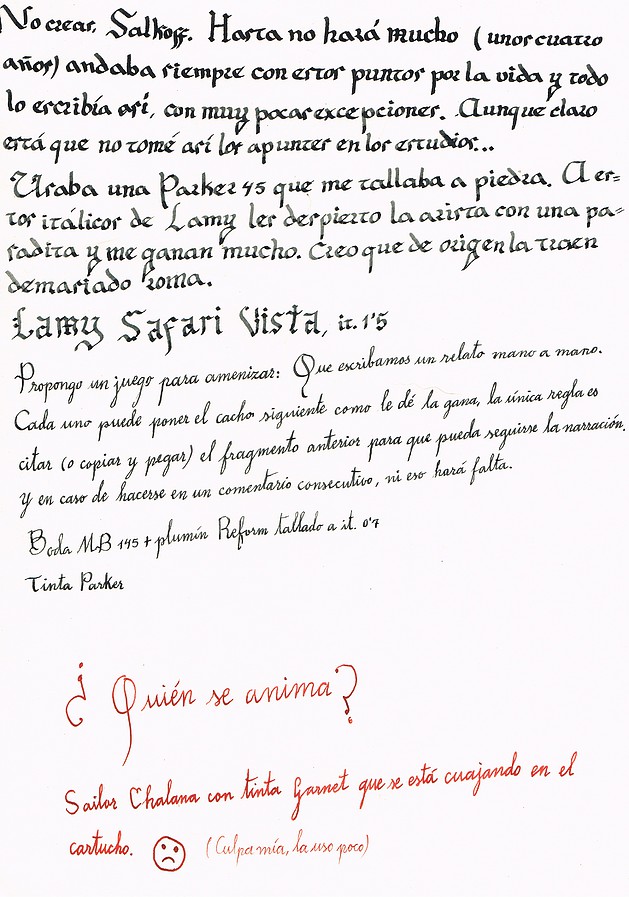 No creas, Salkoff. Hasta no hará mucho (unos cuatro
años) andaba siempre con estos puntos por la vida y todo
lo escribía así, con muy pocas excepciones. Aunque claro
está que no tomé así los apuntes en los estudios...
Usaba una Parker 45 que me tallaba a piedra. A es-
tos itálicos de Lamy les despierto la arista con una pa-
sadita y me ganan mucho. Creo que de origen la traen
demasiado roma.
Lamy Safari Vista, it. 1'5
Propongo un juego para amenizar: Que escribamos un relato mano a mano.
Cada uno puede poner el cacho siguiente como le dé la gana, la única regla es
citar (o copiar y pegar) el fragmento anterior para que pueda seguirse la narración.
Y en caso de hacerse en un comentario consecutivo, ni eso hará falta.
Boda MB 145 + plumín Reform tallado a it. 0'7
Tinta Parker
¿Quién se anima?
Sailor Chalana con tinta Garnet que se está cuajando en el
cartucho. (Culpa mía, la uso poco)